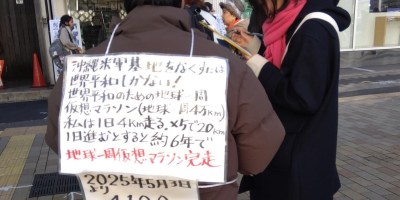 沖縄米軍基地をなくすには
世界平和しかない!
世界平和のための地球一周
仮想マラソン(地球一周4万km)
私は1日4km走る。×5で20km
1日進むとすると約6年で
地球一周仮想マラソン完走
2025年5月3日
より